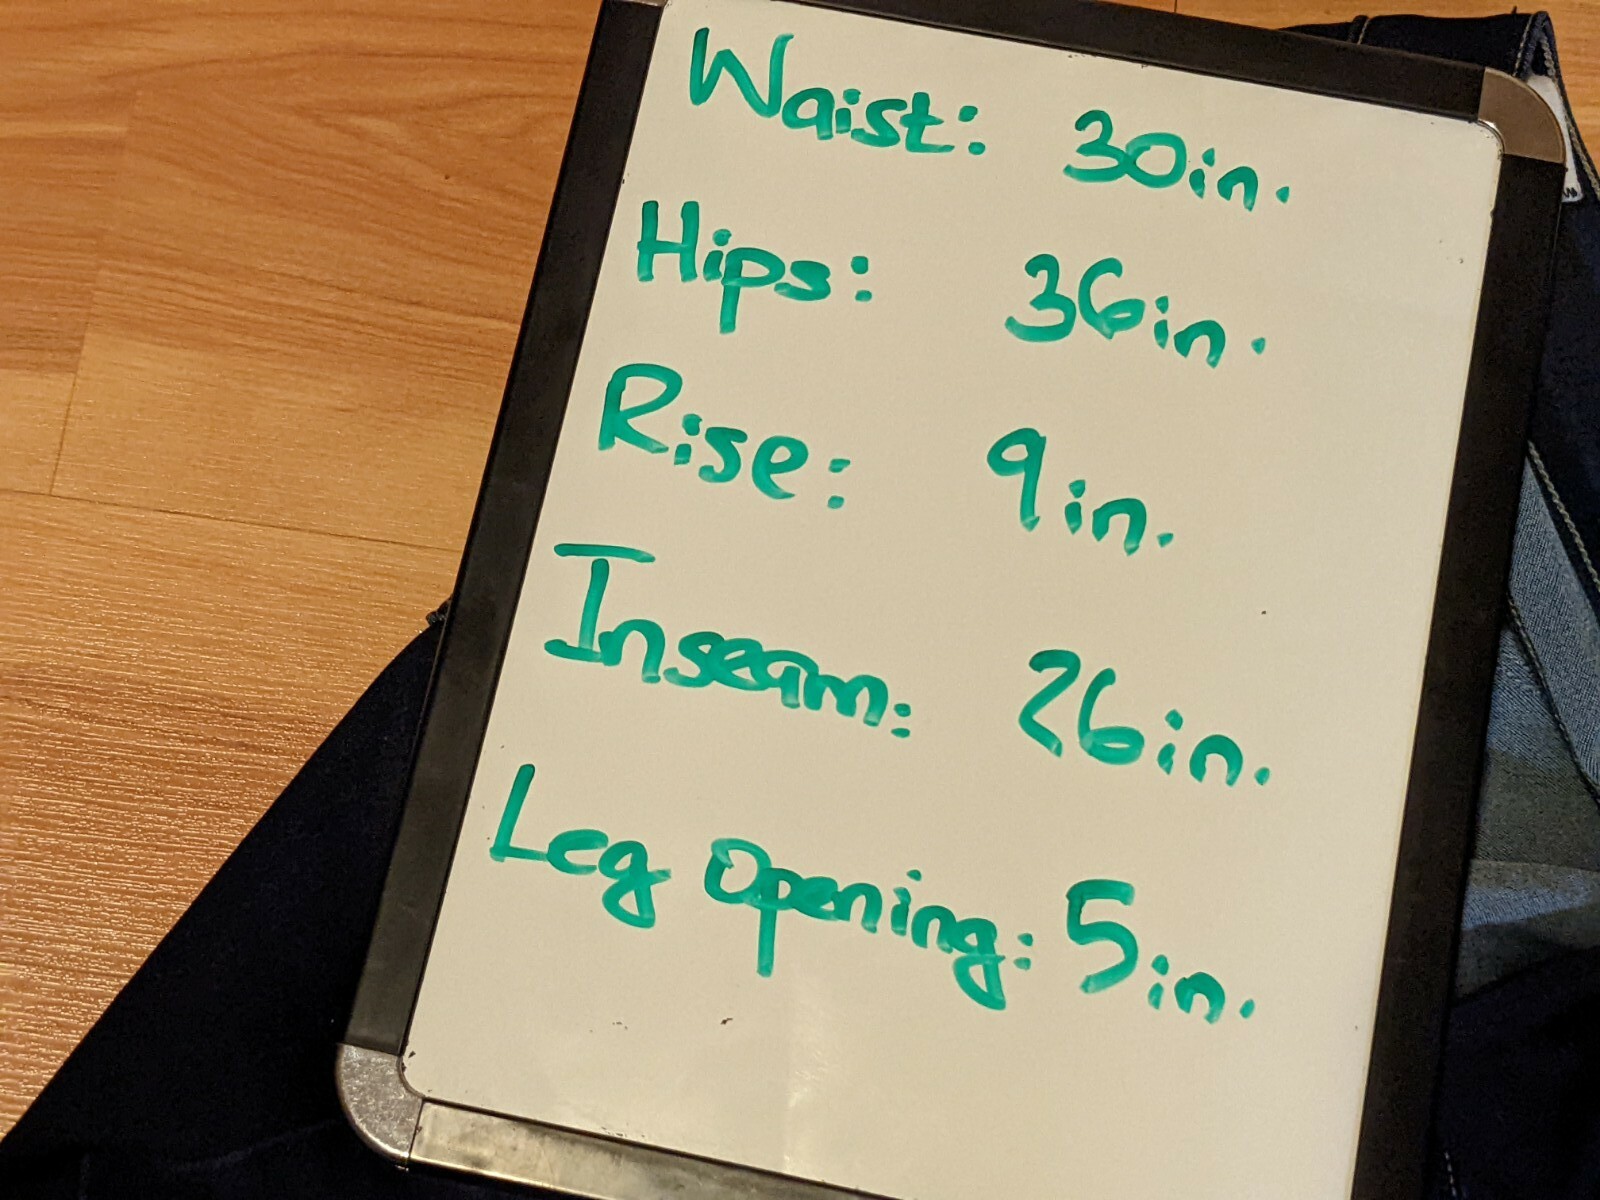 Waist: 30in.
Hips: 36in.
Rise: 9in.
Inseam: 26in.
Leg Opening: 5in.